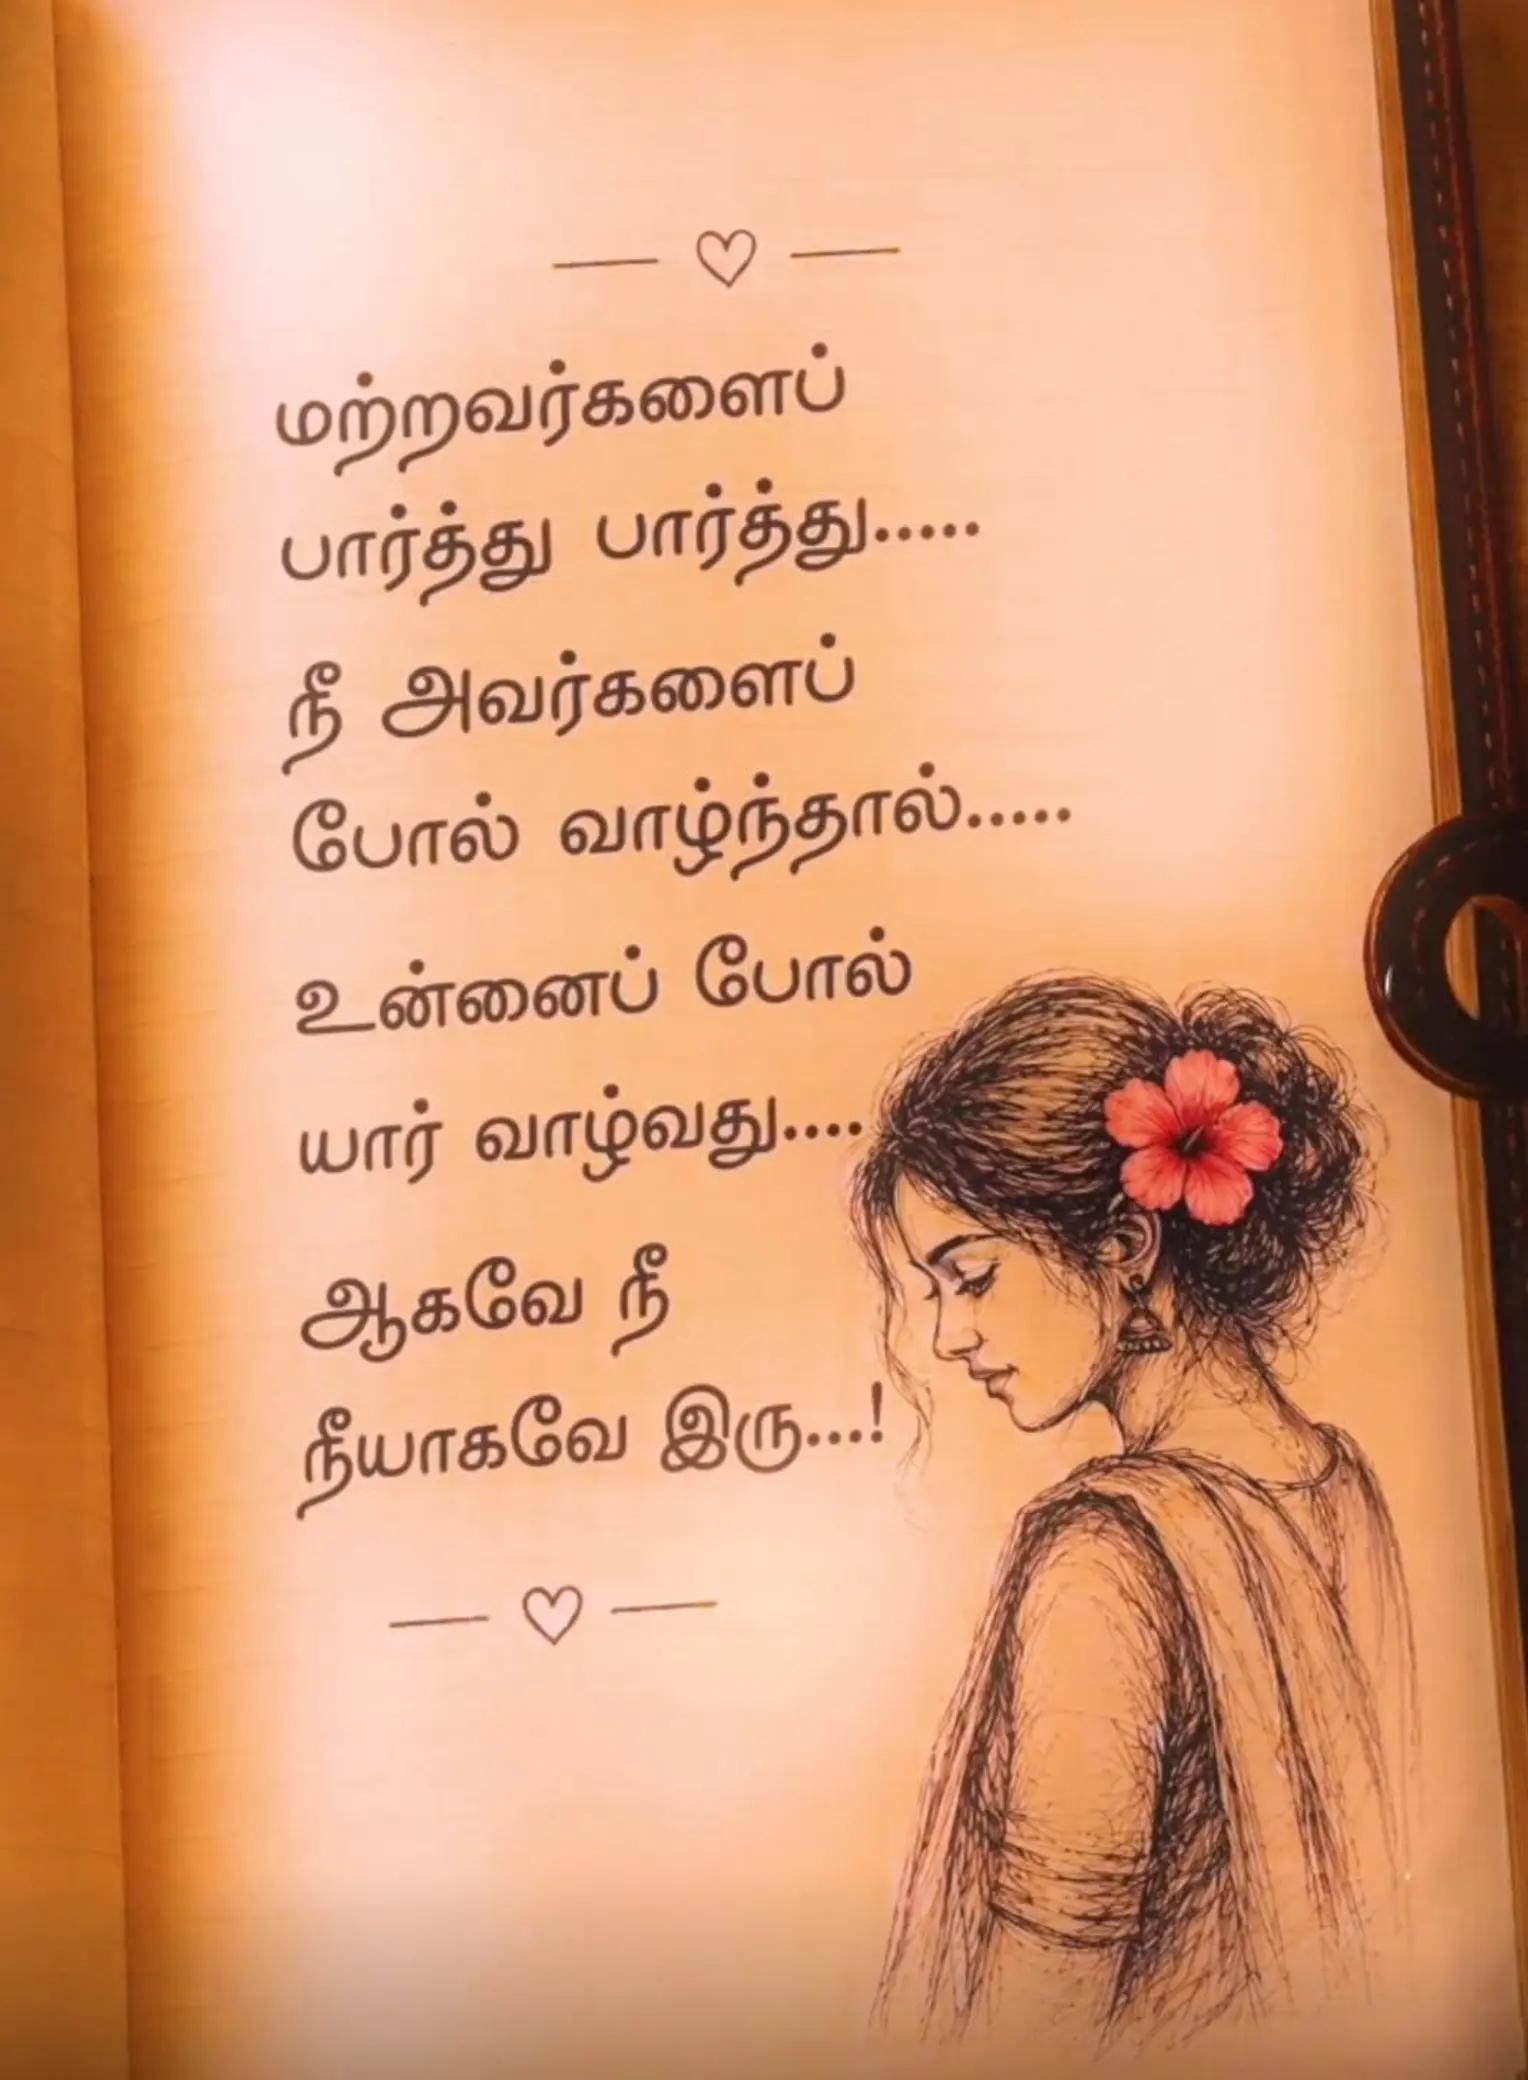 மற்றவர்களைப்
பார்த்து பார்த்து.....
நீ அவர்களைப்
போல் வாழ்ந்தால்.....
உன்னைப் போல்
யார் வாழ்வது....
ஆகவே நீ
நீயாகவே இரு...!